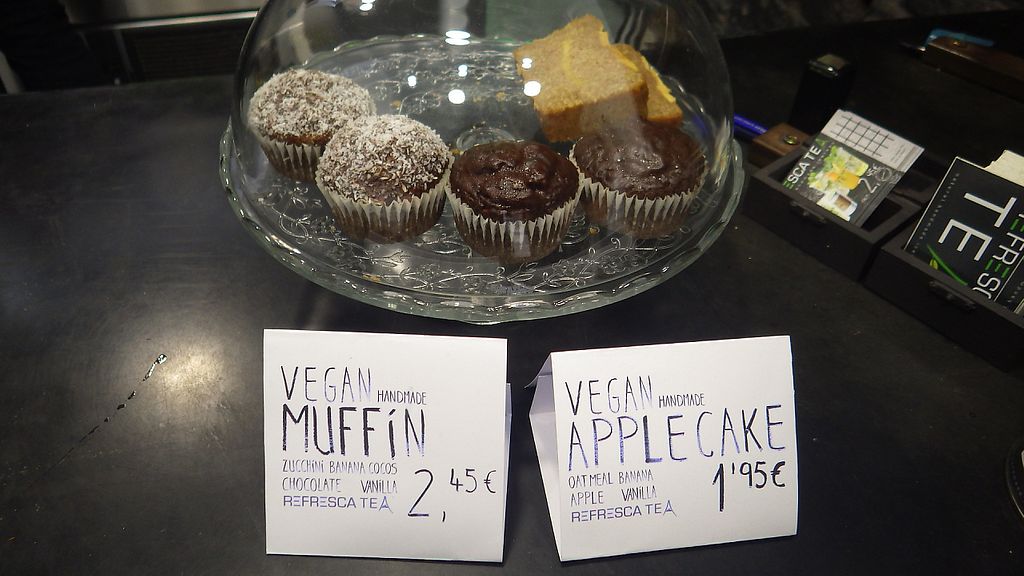 VEGAN HANDMADE
MUFFíN
ZUCCHINI BANANA COCOS
CHOCOLATE VANILLA
2,45€
REFRESCA TEA
VEGAN HANDMADE
APPLECAKE
OATMEAL BANANA
APPLE VANILLA
1'95€
REFRESCA TEA
ESCA TE
2,
TE
REFRESC